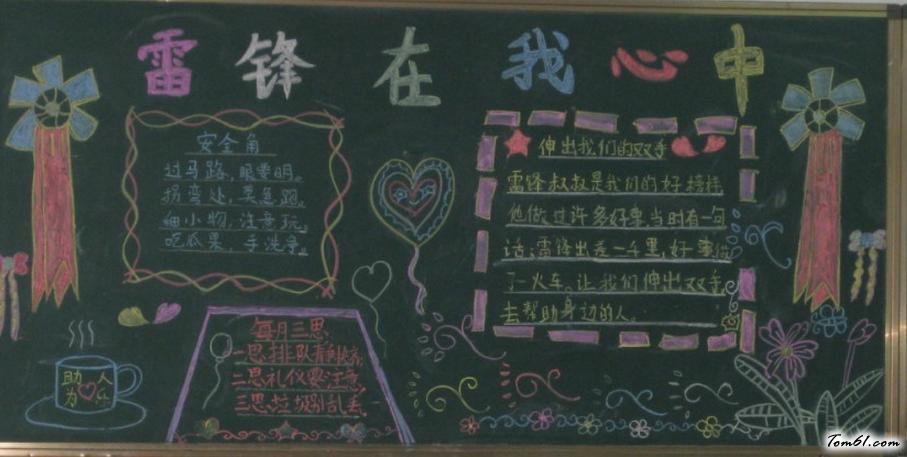 雷锋在我心中
安全角
过马路，眼要明。
拐弯处，莫急跑。
细小物，注意玩。
吃瓜果，手洗净。
伸出我们的双手
雷锋叔叔是我们的好榜样
他做过许多好事。当时有一句
话：雷锋出差一千里，好事做
了一火车。让我们伸出双手
去帮助身边的人。
每月三思
一思排队静快齐
二思礼仪要注意
三思垃圾别乱丢
助人
为乐
Tom61.com